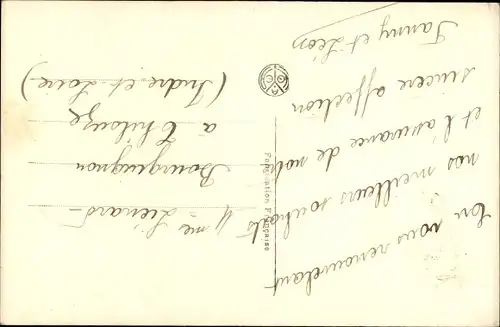 En vous renouvelant
nos meilleurs souhaits
et l'assurance de notre
sincère affection
Fanny et Léon
Fabrication Française
Mme Liénard-
Bourguignon
à Thilouze
(Indre-et-Loire)